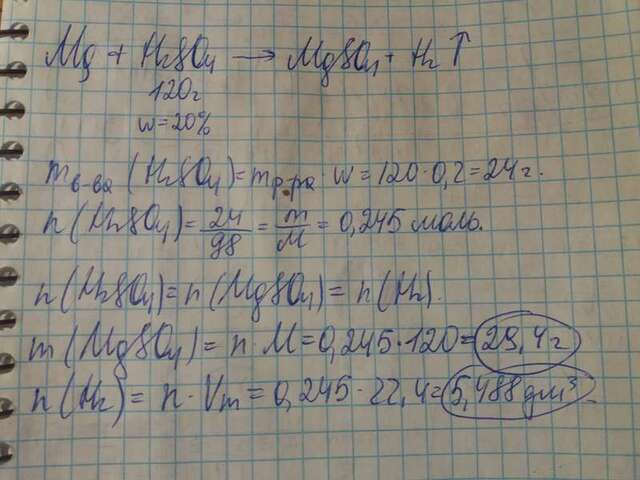 Mg + H₂SO₄ → MgSO₄ + H₂ ↑
120г
w = 20%
m в-ва (H₂SO₄) = m р-ра · w = 120 · 0,2 = 24 г.
n (H₂SO₄) = 24/98 = m/M = 0,245 моль.
n (H₂SO₄) = n (MgSO₄) = n (H₂).
m (MgSO₄) = n · M = 0,245 · 120 = 29,4 г
n (H₂) = n · Vm = 0,245 · 22,4 = 5,488 дм³